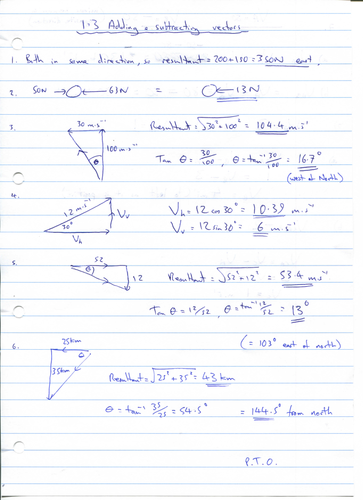 1.3 Adding + subtracting vectors
1. Both in same direction, so resultant = 200 + 150 = 350N east.
2. 50N → ○ ← 63N = ○ ← 13N
3. 30 m·s⁻¹ Resultant = √30² + 100² = 104.4 m·s⁻¹
100 m·s⁻¹
θ Tan θ = 30/100, θ = tan⁻¹ 30/100 = 16.7°
(west of North)
4.
12 m·s⁻¹ Vᵥ Vₕ = 12 cos 30° = 10.39 m·s⁻¹
30° Vᵥ = 12 sin 30° = 6 m·s⁻¹
Vₕ
5. 52
θ 12 Resultant = √52² + 12² = 53.4 m·s⁻¹
Tan θ = 12/52, θ = tan⁻¹ 12/52 = 13°
6. (= 103° east of north)
25km
θ
35km Resultant = √25² + 35² = 43 km
θ = tan⁻¹ 35/25 = 54.5° = 144.5° from north
P.T.O.